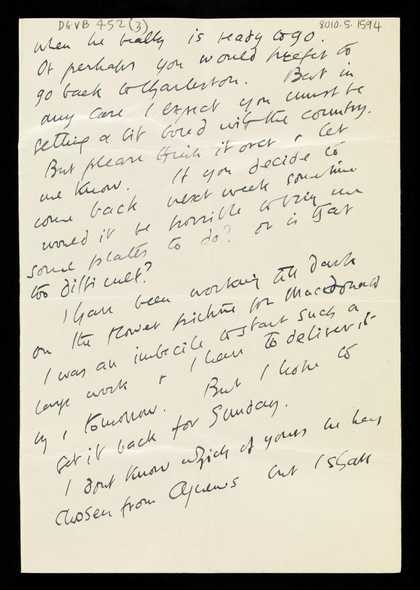 DG·VB 452 (3)
8010.5.1594
when he really is ready to go.
Or perhaps you would prefer to
go back to Charleston. But in
any case I expect you must be
getting a bit bored with the country.
But please think it over & let
me know. If you decide to
come back next week sometime
would it be horrible to bring me
some plates to do? or is that
too difficult?
I have been working till dark
on the flower picture for Macdonald
I was an imbecile to start such a
large work & I have to deliver it
by 1 tomorrow. But I hope to
get it back for Sunday.
I dont know which of yours he has
chosen from Agnews but I shall